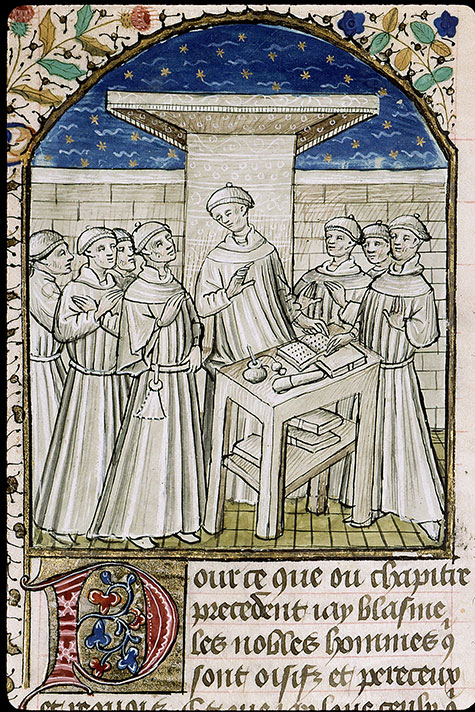 Pour ce que ou chapitre
precedent iay blasme
les nobles hommes q̃
sont oisifz et pereceux
et